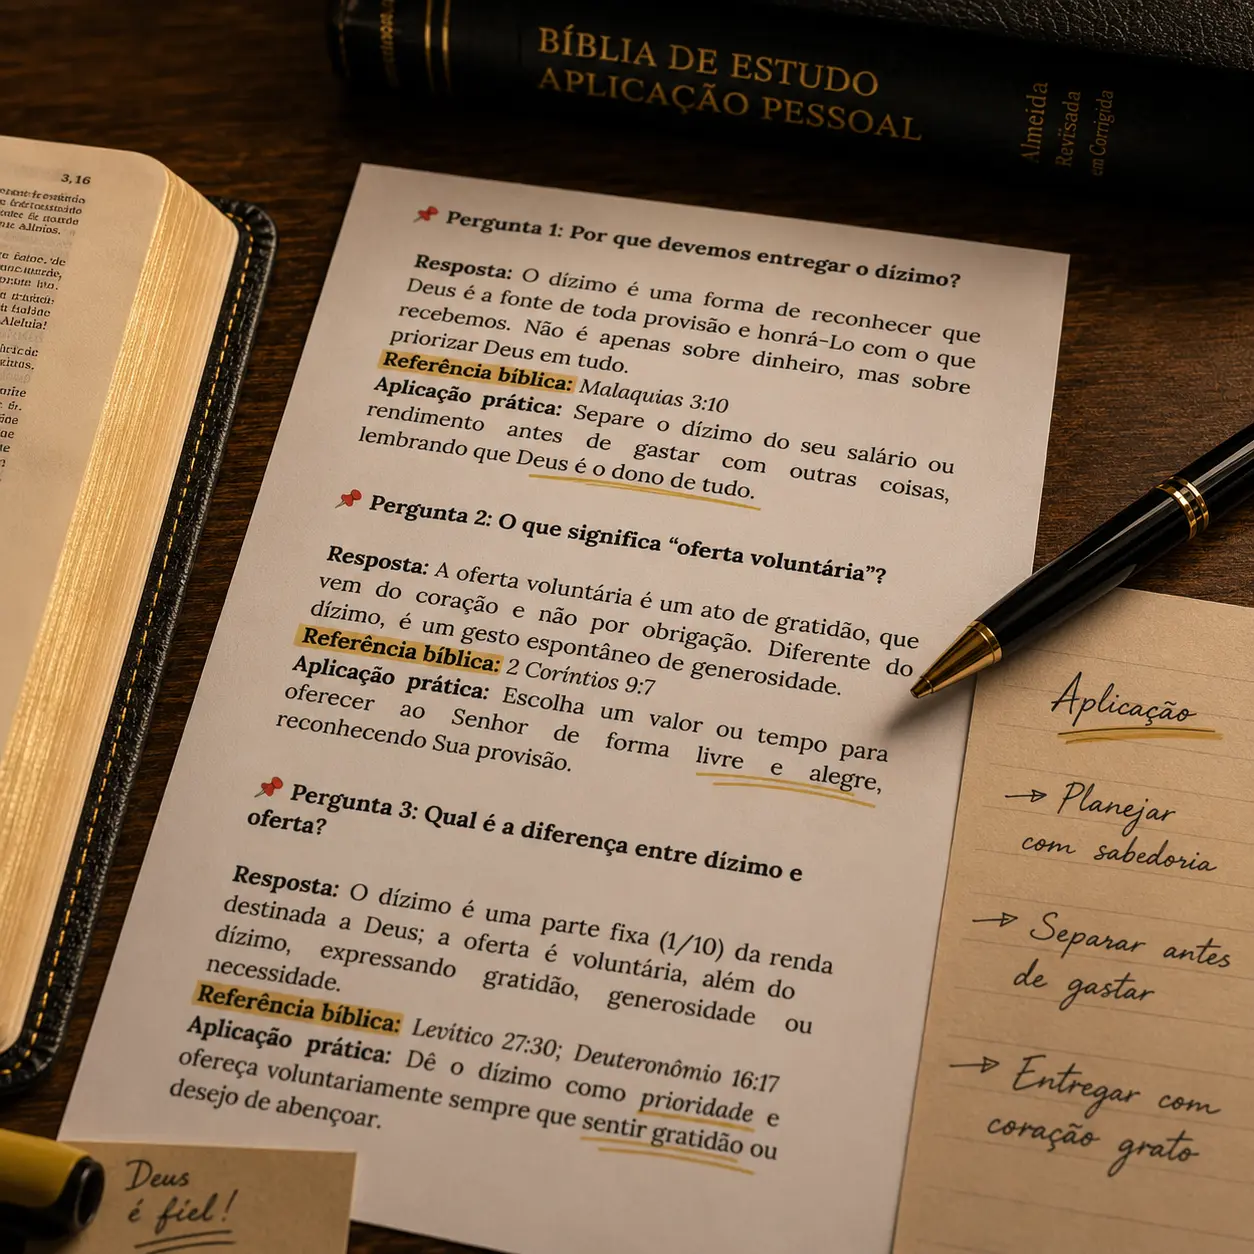 BÍBLIA DE ESTUDO
APLICAÇÃO PESSOAL
Almeida
Reviisada
em Corrigida
3,16
📌 Pergunta 1: Por que devemos entregar o dízimo?
Resposta: O dízimo é uma forma de reconhecer que
Deus é a fonte de toda provisão e honrá-Lo com o que
recebemos. Não é apenas sobre dinheiro, mas sobre
priorizar Deus em tudo.
Referência bíblica: Malaquias 3:10
Aplicação prática: Separe o dízimo do seu salário ou
rendimento antes de gastar com outras coisas,
lembrando que Deus é o dono de tudo.
📌 Pergunta 2: O que significa “oferta voluntária”?
Resposta: A oferta voluntária é um ato de gratidão, que
vem do coração e não por obrigação. Diferente do
dízimo, é um gesto espontâneo de generosidade.
Referência bíblica: 2 Coríntios 9:7
Aplicação prática: Escolha um valor ou tempo para
oferecer ao Senhor de forma livre e alegre,
reconhecendo Sua provisão.
📌 Pergunta 3: Qual é a diferença entre dízimo e
oferta?
Resposta: O dízimo é uma parte fixa (1/10) da renda
destinada a Deus; a oferta é voluntária, além do
dízimo, expressando gratidão, generosidade ou
necessidade.
Referência bíblica: Levítico 27:30; Deuteronômio 16:17
Aplicação prática: Dê o dízimo como prioridade e
ofereça voluntariamente sempre que sentir gratidão ou
desejo de abençoar.
Aplicação
→ Planejar
com sabedoria
→ Separar antes
de gastar
→ Entregar com
coração grato
Deus
é fiel!